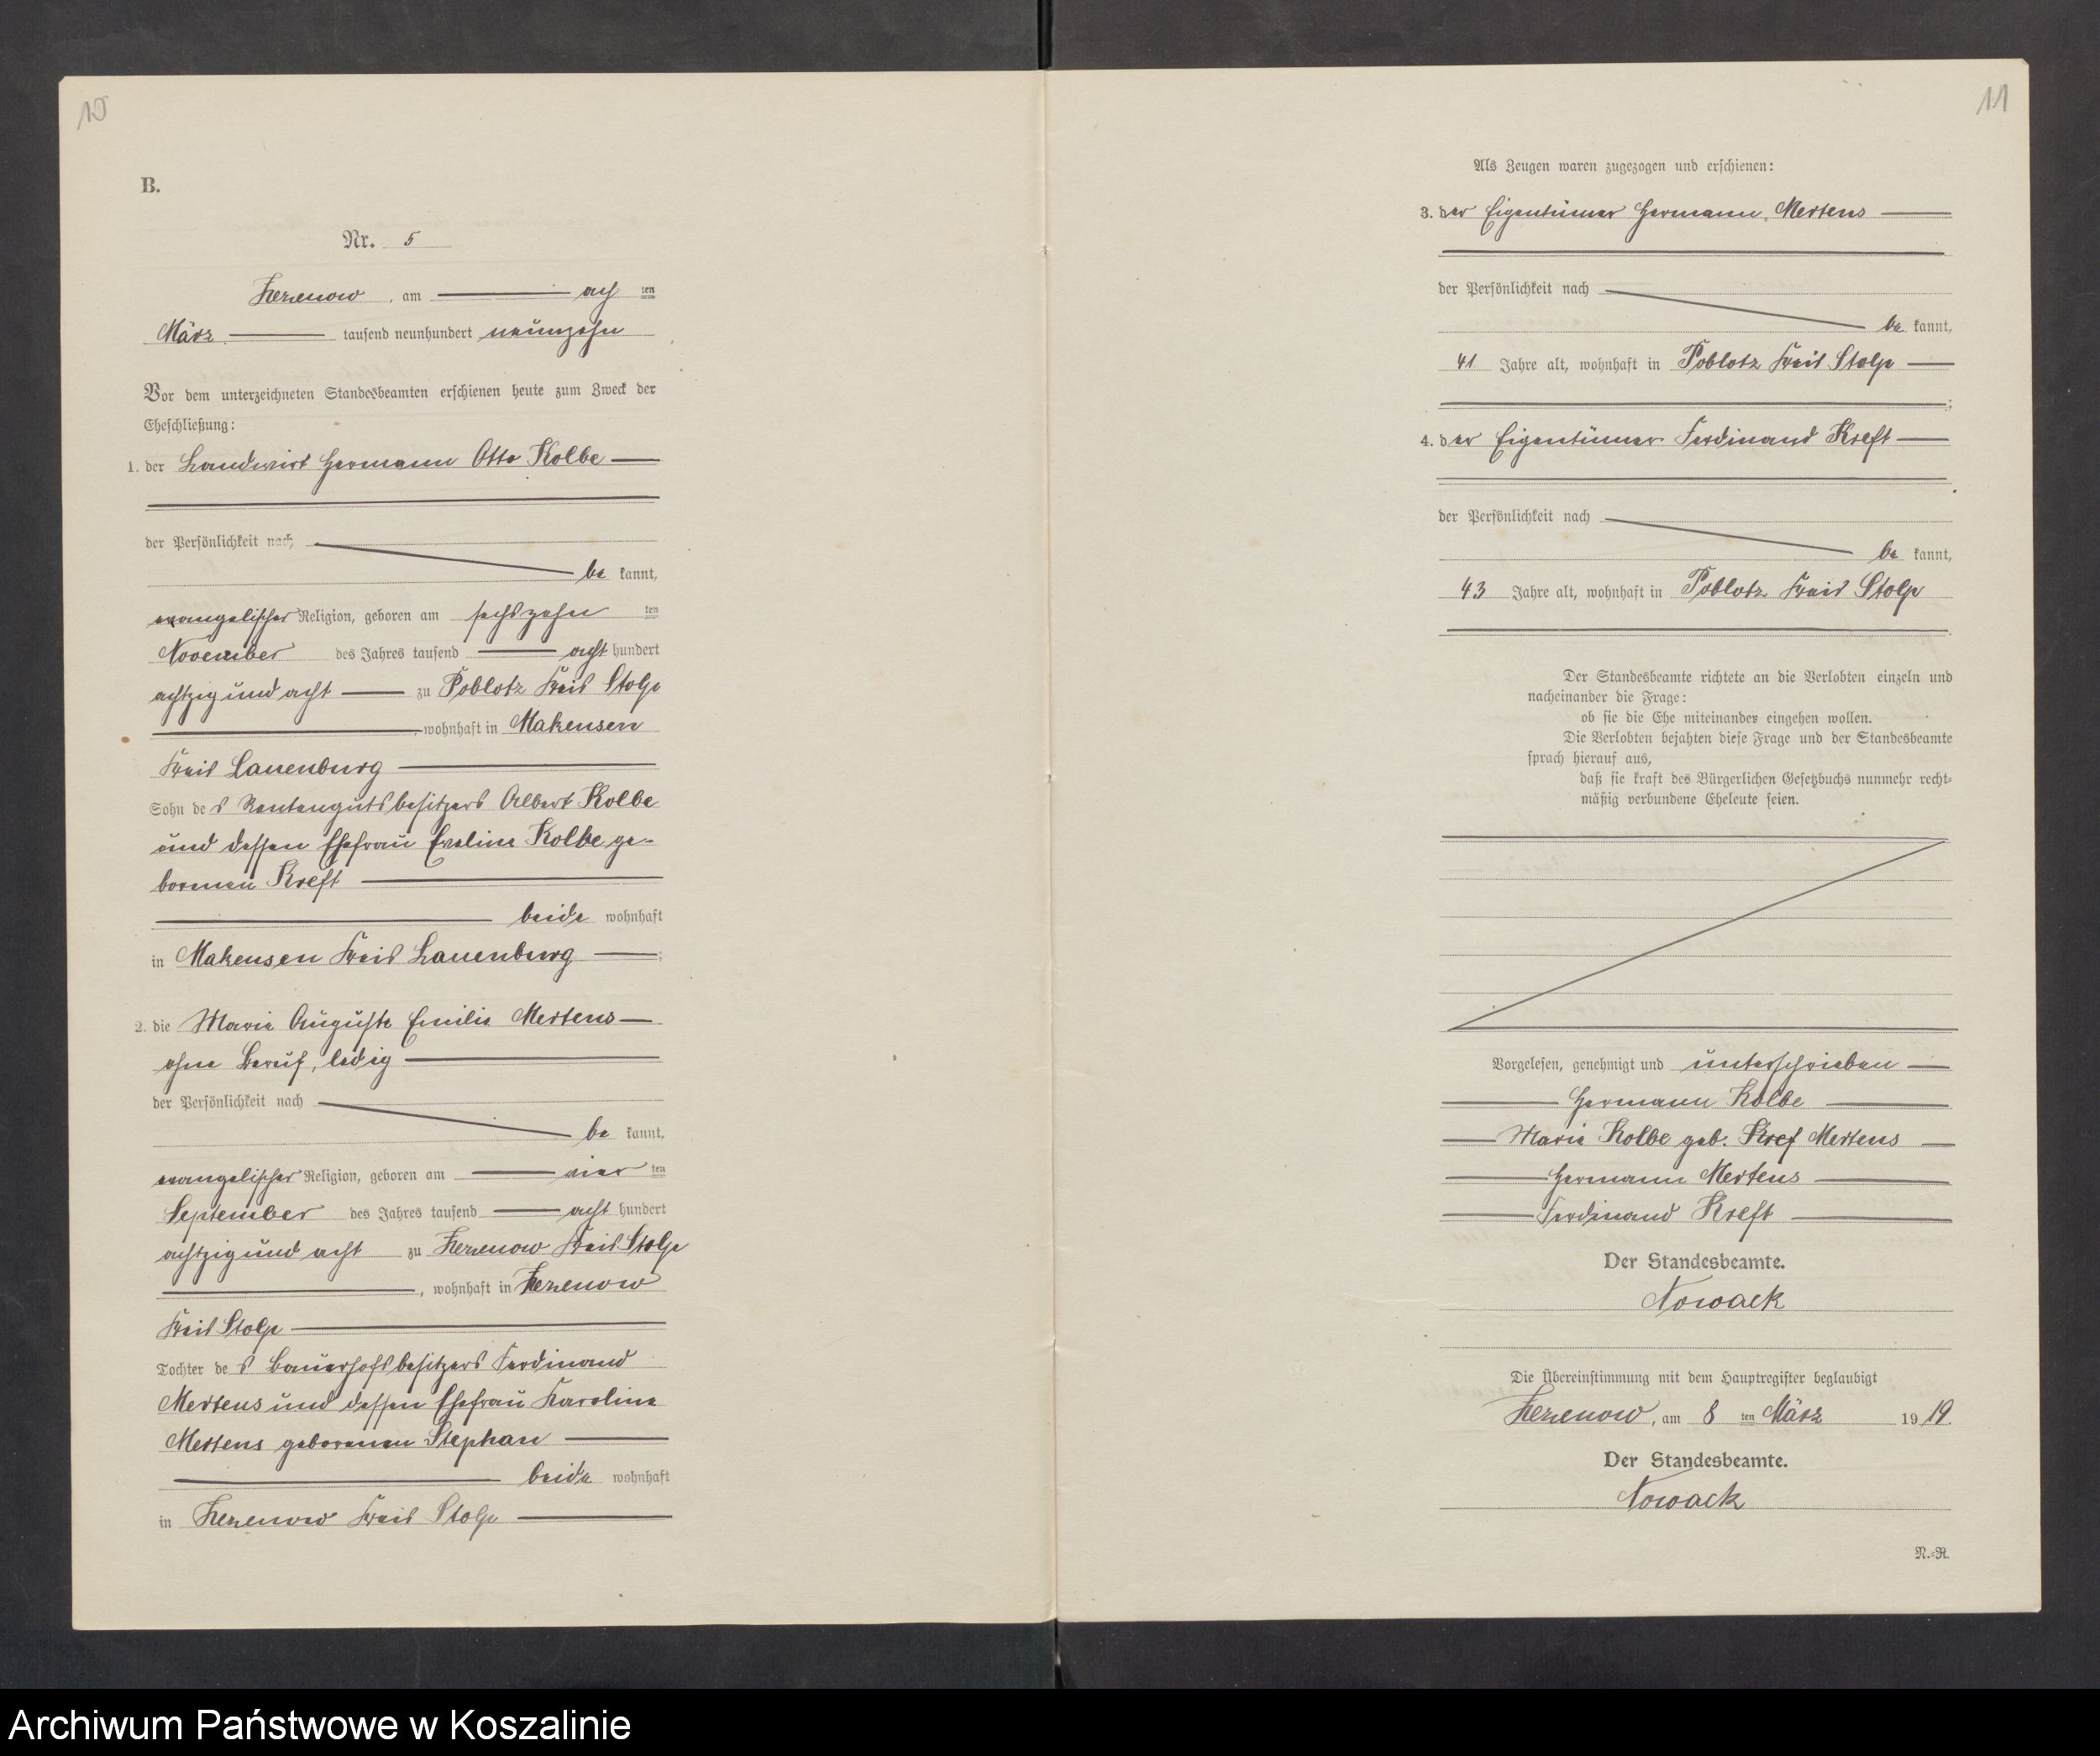 10
B.
Nr. 5
Zezenow, am ach ten
März tausend neunhundert neunzehn
Vor dem unterzeichneten Standesbeamten erschienen heute zum Zweck der
Eheschließung:
1. der Landwirt Hermann Otto Kolbe
der Persönlichkeit nach
be kannt,
evangelischer Religion, geboren am sechszehn ten
November des Jahres tausend acht hundert
achtzig und acht zu Poblotz Kreis Stolp
wohnhaft in Makensen
Kreis Lauenburg
Sohn des Rentengutsbesitzers Albert Kolbe
und dessen Ehefrau Eveline Kolbe ge-
bornen Kreft
beide wohnhaft
in Makensen Kreis Lauenburg ;
2. die Marie Auguste Emilie Mertens
ohne Beruf, ledig
der Persönlichkeit nach
be kannt,
evangelischer Religion, geboren am vier ten
September des Jahres tausend acht hundert
achtzig und acht zu Zezenow Kreis Stolp
, wohnhaft in Zezenow
Kreis Stolp
Tochter des Bauerhofsbesitzers Ferdinand
Mertens und dessen Ehefrau Karoline
Mertens geborenen Stephan
beide wohnhaft
in Zezenow Kreis Stolp
11
Als Zeugen waren zugezogen und erschienen:
3. der Eigentümer Hermann Mertens
der Persönlichkeit nach
be kannt,
41 Jahre alt, wohnhaft in Poblotz Kreis Stolp
;
4. der Eigentümer Ferdinand Kreft
der Persönlichkeit nach
be kannt,
43 Jahre alt, wohnhaft in Poblotz Kreis Stolp
Der Standesbeamte richtete an die Verlobten einzeln und
nacheinander die Frage:
ob sie die Ehe miteinander eingehen wollen.
Die Verlobten bejahten diese Frage und der Standesbeamte
sprach hierauf aus,
daß sie kraft des Bürgerlichen Gesetzbuchs nunmehr recht-
mäßig verbundene Eheleute seien.
Vorgelesen, genehmigt und unterschrieben
Hermann Kolbe
Marie Kolbe geb. Kref Mertens
Hermann Mertens
Ferdinand Kreft
Der Standesbeamte.
Nowack
Die Übereinstimmung mit dem Hauptregister beglaubigt
Zezenow, am 8 ten März 19 19.
Der Standesbeamte.
Nowack
N.-R.
Archiwum Państwowe w Koszalinie